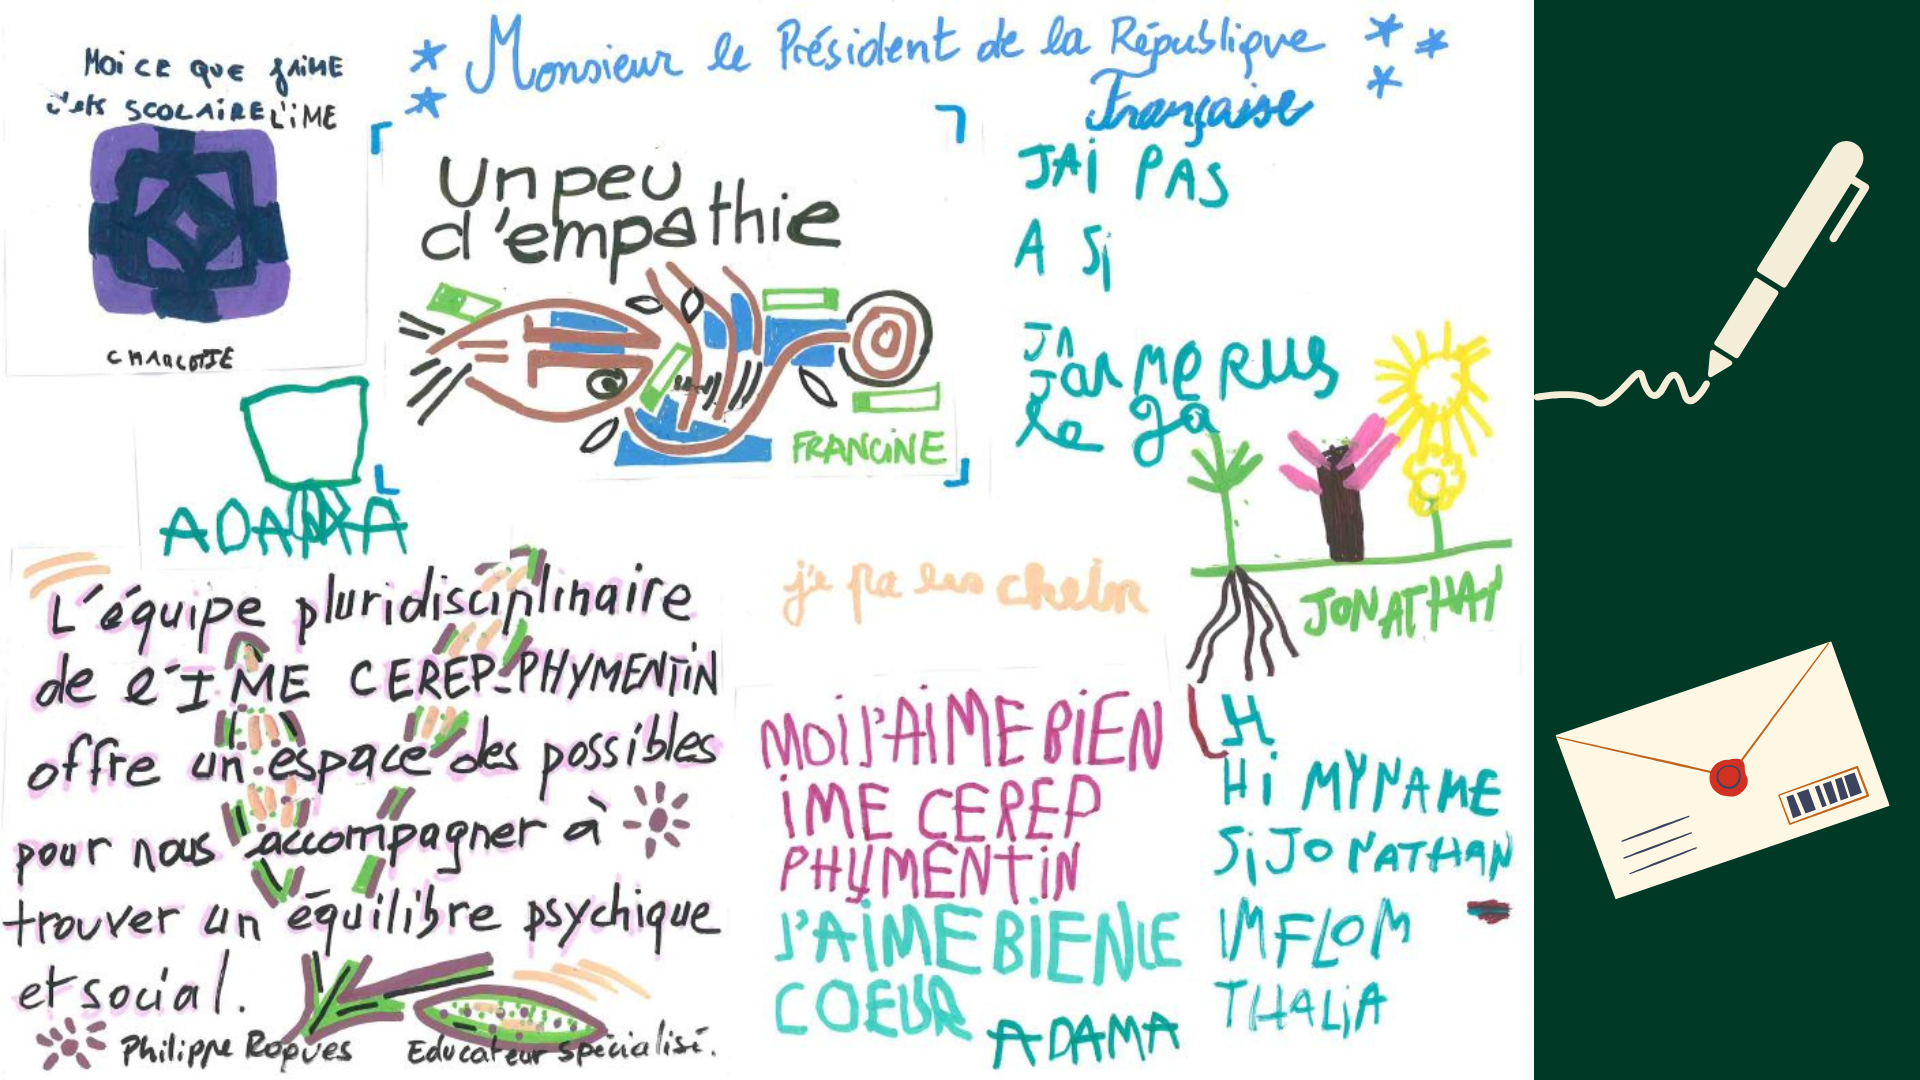 Moi CE QUE J'AIME
c'ets SCOLAIRE L'IME
CHARLOTTE
Monsieur le Président de la République
Française
Un peu
d'empathie
FRANCINE
ADAMA
JAI PAS
A Si
JA
Jar me RUS
le ga
JONATHAN
L'équipe pluridisciplinaire
de l'IME CEREP-PHYMENTIN
offre un espace des possibles
pour nous accompagner à
trouver un équilibre psychique
et social.
Philippe Ropves Educateur spécialisé.
j'e pa les chein
MOI J'AIME BIEN
IME CEREP
PHYMENTIN
J'AIME BIEN LE
COEUR
ADAMA
H
Hi MY NAME
Si JONATHAN
IM FLOM
THALIA